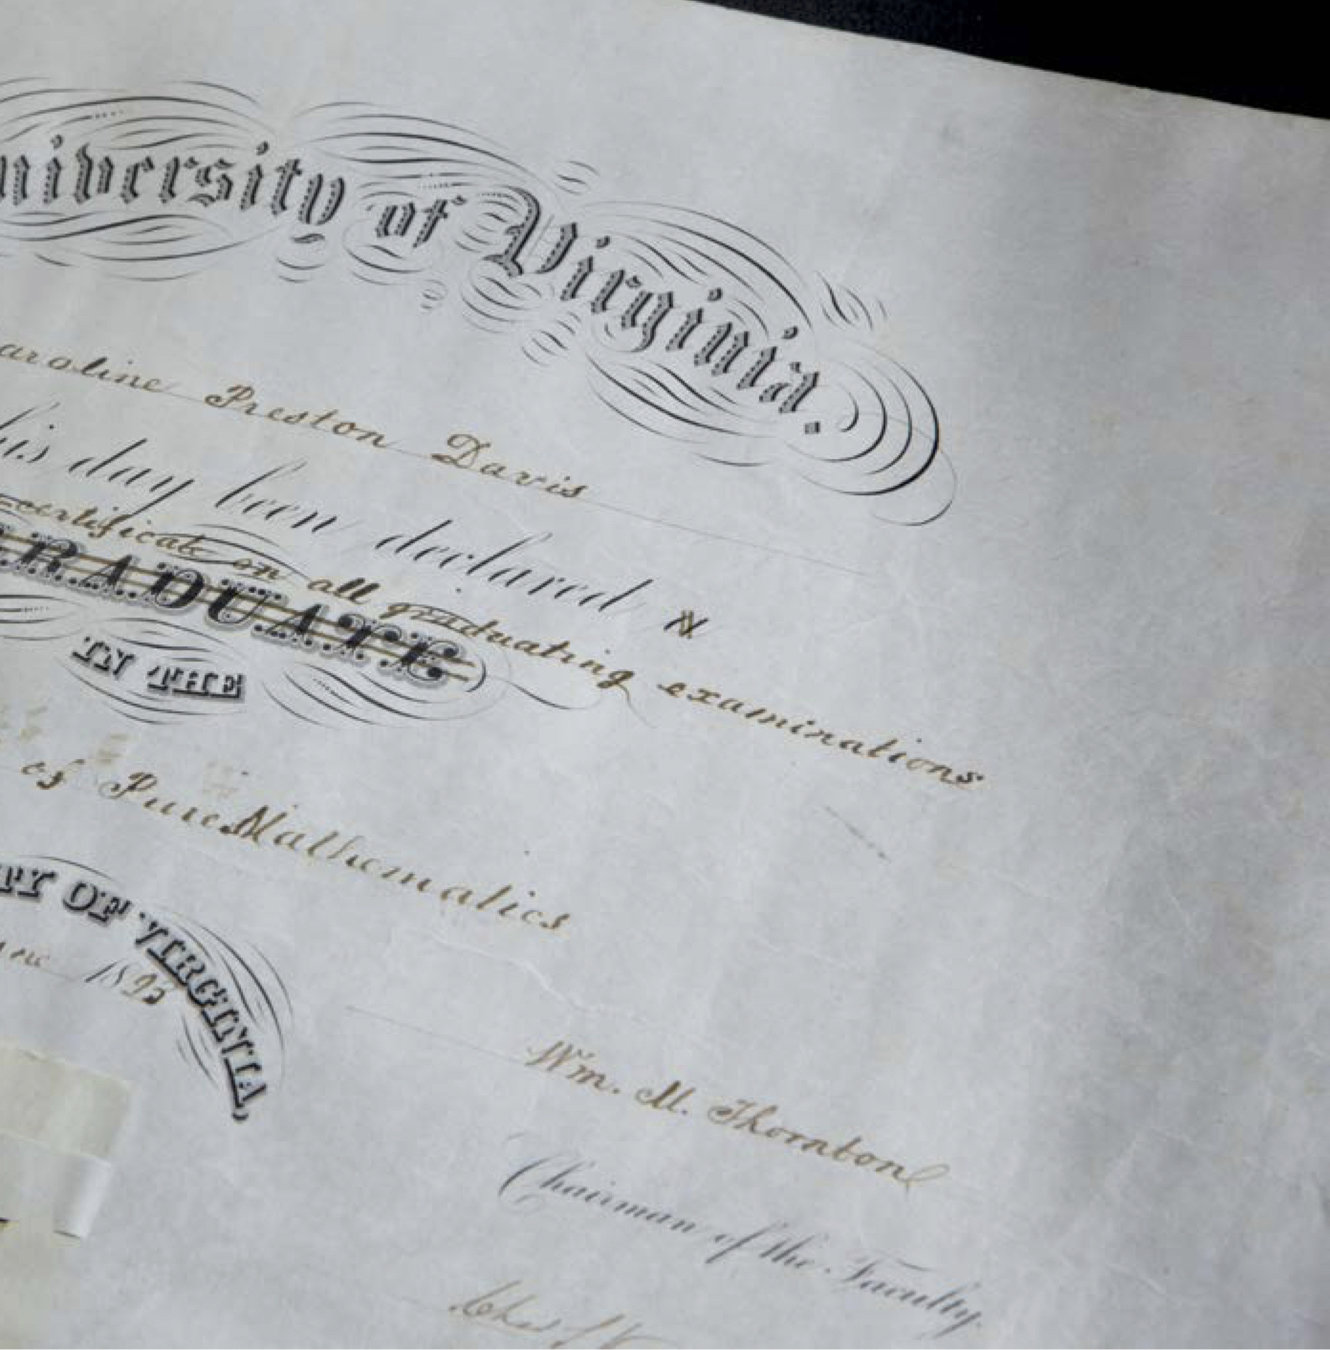 niversity of Virginia.
aroline Preston Davis
his day been declared a
certificate on all graduating examinations
GRADUATE
IN THE
of Pure Mathematics
TY OF VIRGINIA,
une 1893
Wm. M. Thornton
Chairman of the Faculty.